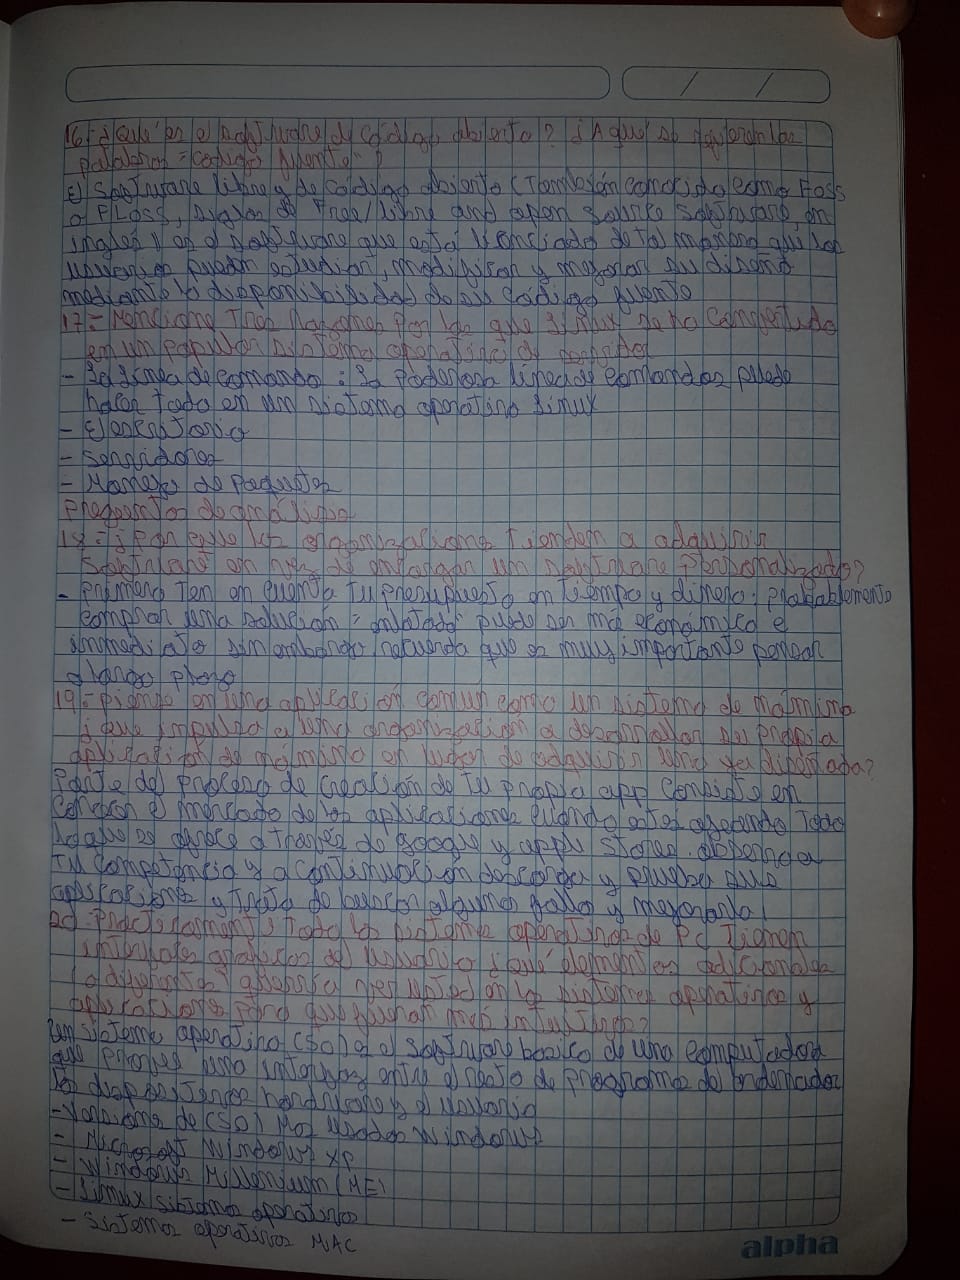 16- ¿Qué es el software de código abierto? ¿A qué se refieren las
palabras "código fuente"?
El software libre y de código abierto (También conocido como Foss
o FLOSS, siglas de Free/libre and open source software en
inglés) es el software que está licenciado de tal manera que los
usuarios puedan estudiar, modificar y mejorar su diseño
mediante la disponibilidad de su código fuente
17- Mencione Tres Razones por las que Linux se ha convertido
en un popular sistema operativo de servidor
- La línea de comando: La poderosa línea de comandos puede
hacer todo en un sistema operativo Linux
- El escritorio
- Servidores
- Manejo de paquetes
Preguntas de análisis
18- ¿Por qué las organizaciones Tienden a adquirir
Software en vez de encargar un software Personalizado?
- Primero Ten en cuenta Tu presupuesto en tiempo y dinero: probablemente
comprar una solución "enlatada" puede ser más económico e
inmediato sin embargo, recuerda que es muy importante pensar
a largo plazo
19- piense en una aplicación común como un sistema de nómina
¿que impulsa a una organización a desarrollar su propia
aplicación de nómina en lugar de adquirir una ya diseñada?
Parte del proceso de creación de Tu propia app consiste en
conocer el mercado de las aplicaciones cuando estes ojeando Todo
lo que se ofrece a traves de google y apple stores. observa a
Tu Competencia y a continuación descarga y prueba sus
aplicaciones y trata de buscar algunos fallos y mejorarla!
20- Practicamente Todos los sistemas operativos de PC Tienen
interfaces gráficas de usuario ¿qué elementos adicionales
o diferentes querría ver usted en los sistemas operativos y
aplicaciones para que fueran más intuitivos?
Un sistema operativo (SO) es el software basico de una computadora
que provee una interfaz entre el resto de programas de ordenador
los dispositivos hardware y el usuario
- Versiones de (SO) Mas usados Windows
- Microsoft Windows XP
- Windows Millenium (ME)
- Linux sistemas operativos
- Sistemas operativos MAC
alpha